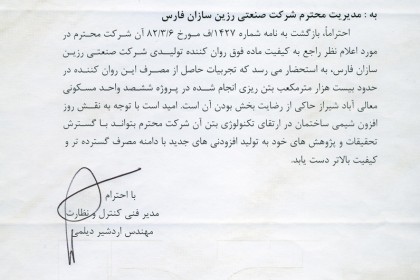 به : مدیریت محترم شرکت صنعتی رزین سازان فارس
احتراماً، بازگشت به نامه شماره ۱۴۲۷/ف مورخ ۸۲/۳/۶ آن شرکت محترم در
مورد اعلام نظر راجع به کیفیت ماده فوق روان کننده تولیدی شرکت صنعتی رزین
سازان فارس، به استحضار می رسد که تجربیات حاصل از مصرف این روان کننده در
حدود بیست هزار مترمکعب بتن ریزی انجام شده در پروژه ششصد واحد مسکونی
معالی آباد شیراز حاکی از رضایت بخش بودن آن است. امید است با توجه به نقش روز
افزون شیمی ساختمان در ارتقای تکنولوژی بتن آن شرکت محترم بتواند با گسترش
تحقیقات و پژوهش های خود به تولید افزودنی های جدید با دامنه مصرف گسترده تر و
کیفیت بالاتر دست یابد.
با احترام
مدیر فنی کنترل و نظارت
مهندس اردشیر دیلمی